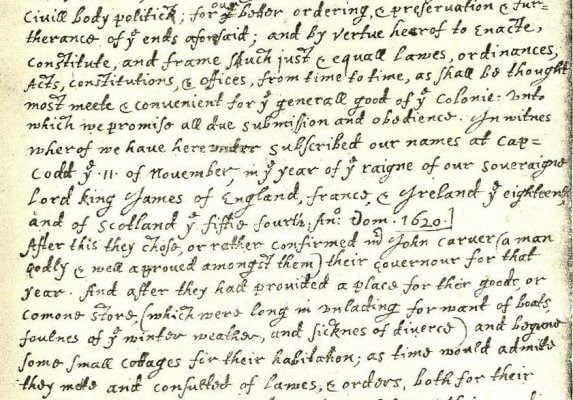 Civill body politick; for our better ordering, & preservation & fur=
therance of yͤ ends aforesaid; and by vertue hearof to Enacte,
constitute, and frame shuch just & equall Lawes, ordinances,
Acts, constitutions, & offices, from time to time, as shall be thought
most meete & convenient for yͤ generall good of yͤ Colonie: unto
which we promise all due submission and obedience. In witnes
wherof we have hereunder subscribed our names at Cap=
Codd yͤ ·11· of November, in yͤ year of yͤ raigne of our soveraigne
Lord king James of England, france, & Ireland yͤ eighteenth
and of Scotland yͤ fiftie fourth. Anͦ: Dom. 1620.]
After this they chose, or rather confirmed mͬ John carver (a man
godly & well aproved amongst them) their Governour for that
year. And after they had provided a place for their goods, or
comone store, (which were long in unlading for want of boats
foulnes of yͤ winter weather, and sicknes of diverce) and begune
some small cottages for their habitation; as time would admitte
they mette and consulted of Lawes, & orders, both for their